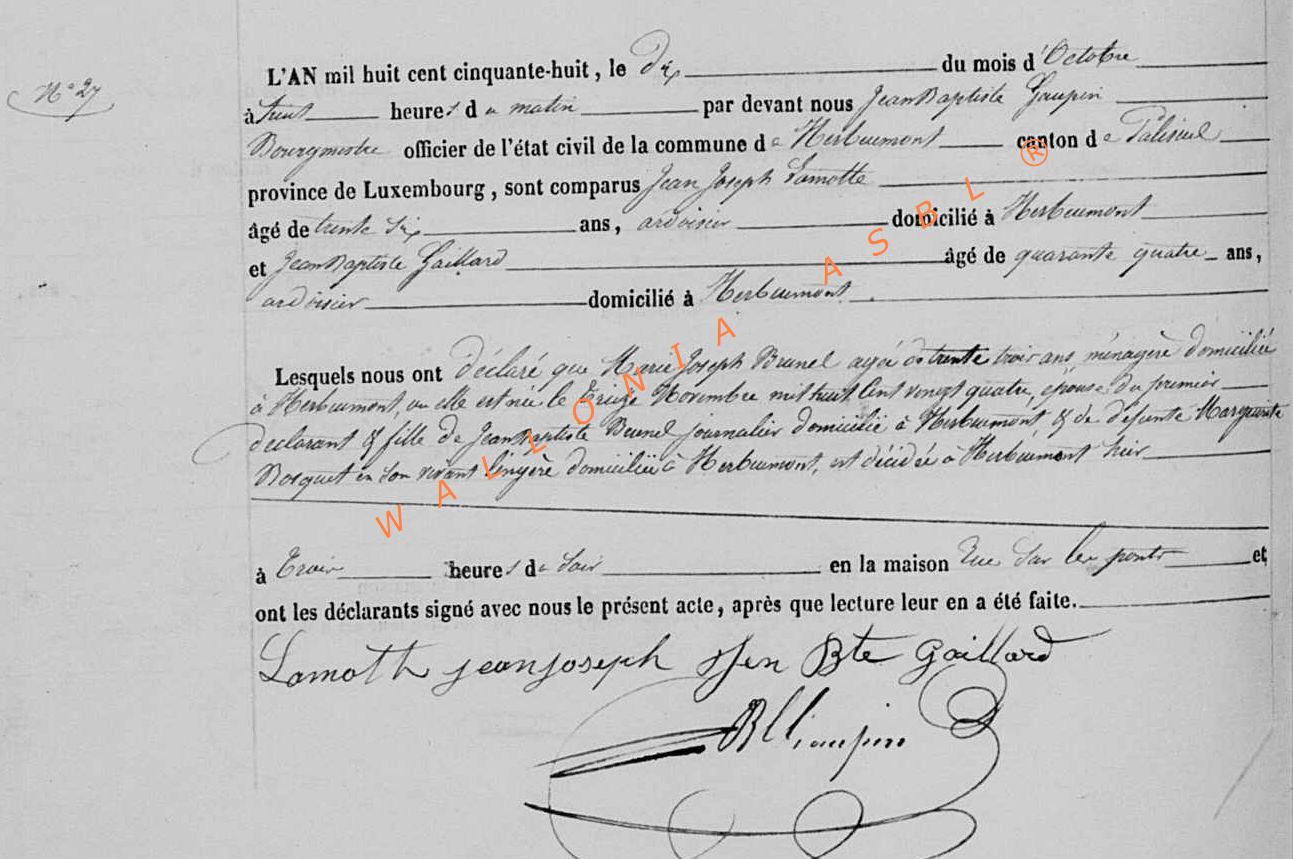 N° 27
L'AN mil huit cent cinquante-huit, le Dix du mois d'Octobre
à heures du matin par devant nous Jean Baptiste Gaupin
Bourgmestre officier de l'état civil de la commune de Herbeumont canton de Paliseul
province de Luxembourg, sont comparus Jean Joseph Lamotte
âgé de trente six ans, ardoisier domicilié à Herbeumont
et Jean Baptiste Gaillard âgé de quarante quatre ans,
ardoisier domicilié à Herbeumont
Lesquels nous ont déclaré que Marie Joseph Brunel agée de trente trois ans ménagère domiciliée
à Herbeumont, ou elle est née le Treize Novembre mil huit Cent vingt quatre, épouse du premier
déclarant & fille de Jean Baptiste Brunel journalier domicilié à Herbeumont, & de défunte Marguerite
Bosquet en son vivant lingère domiciliée à Herbeumont, est décédée à Herbeumont hier
à Trois heures du Soir en la maison Rue Sur les ponts et
ont les déclarants signé avec nous le présent acte, après que lecture leur en a été faite.
Lamoth jean joseph Jen Bte Gaillard
JB Gaupin
WALLONIA ASBL ®